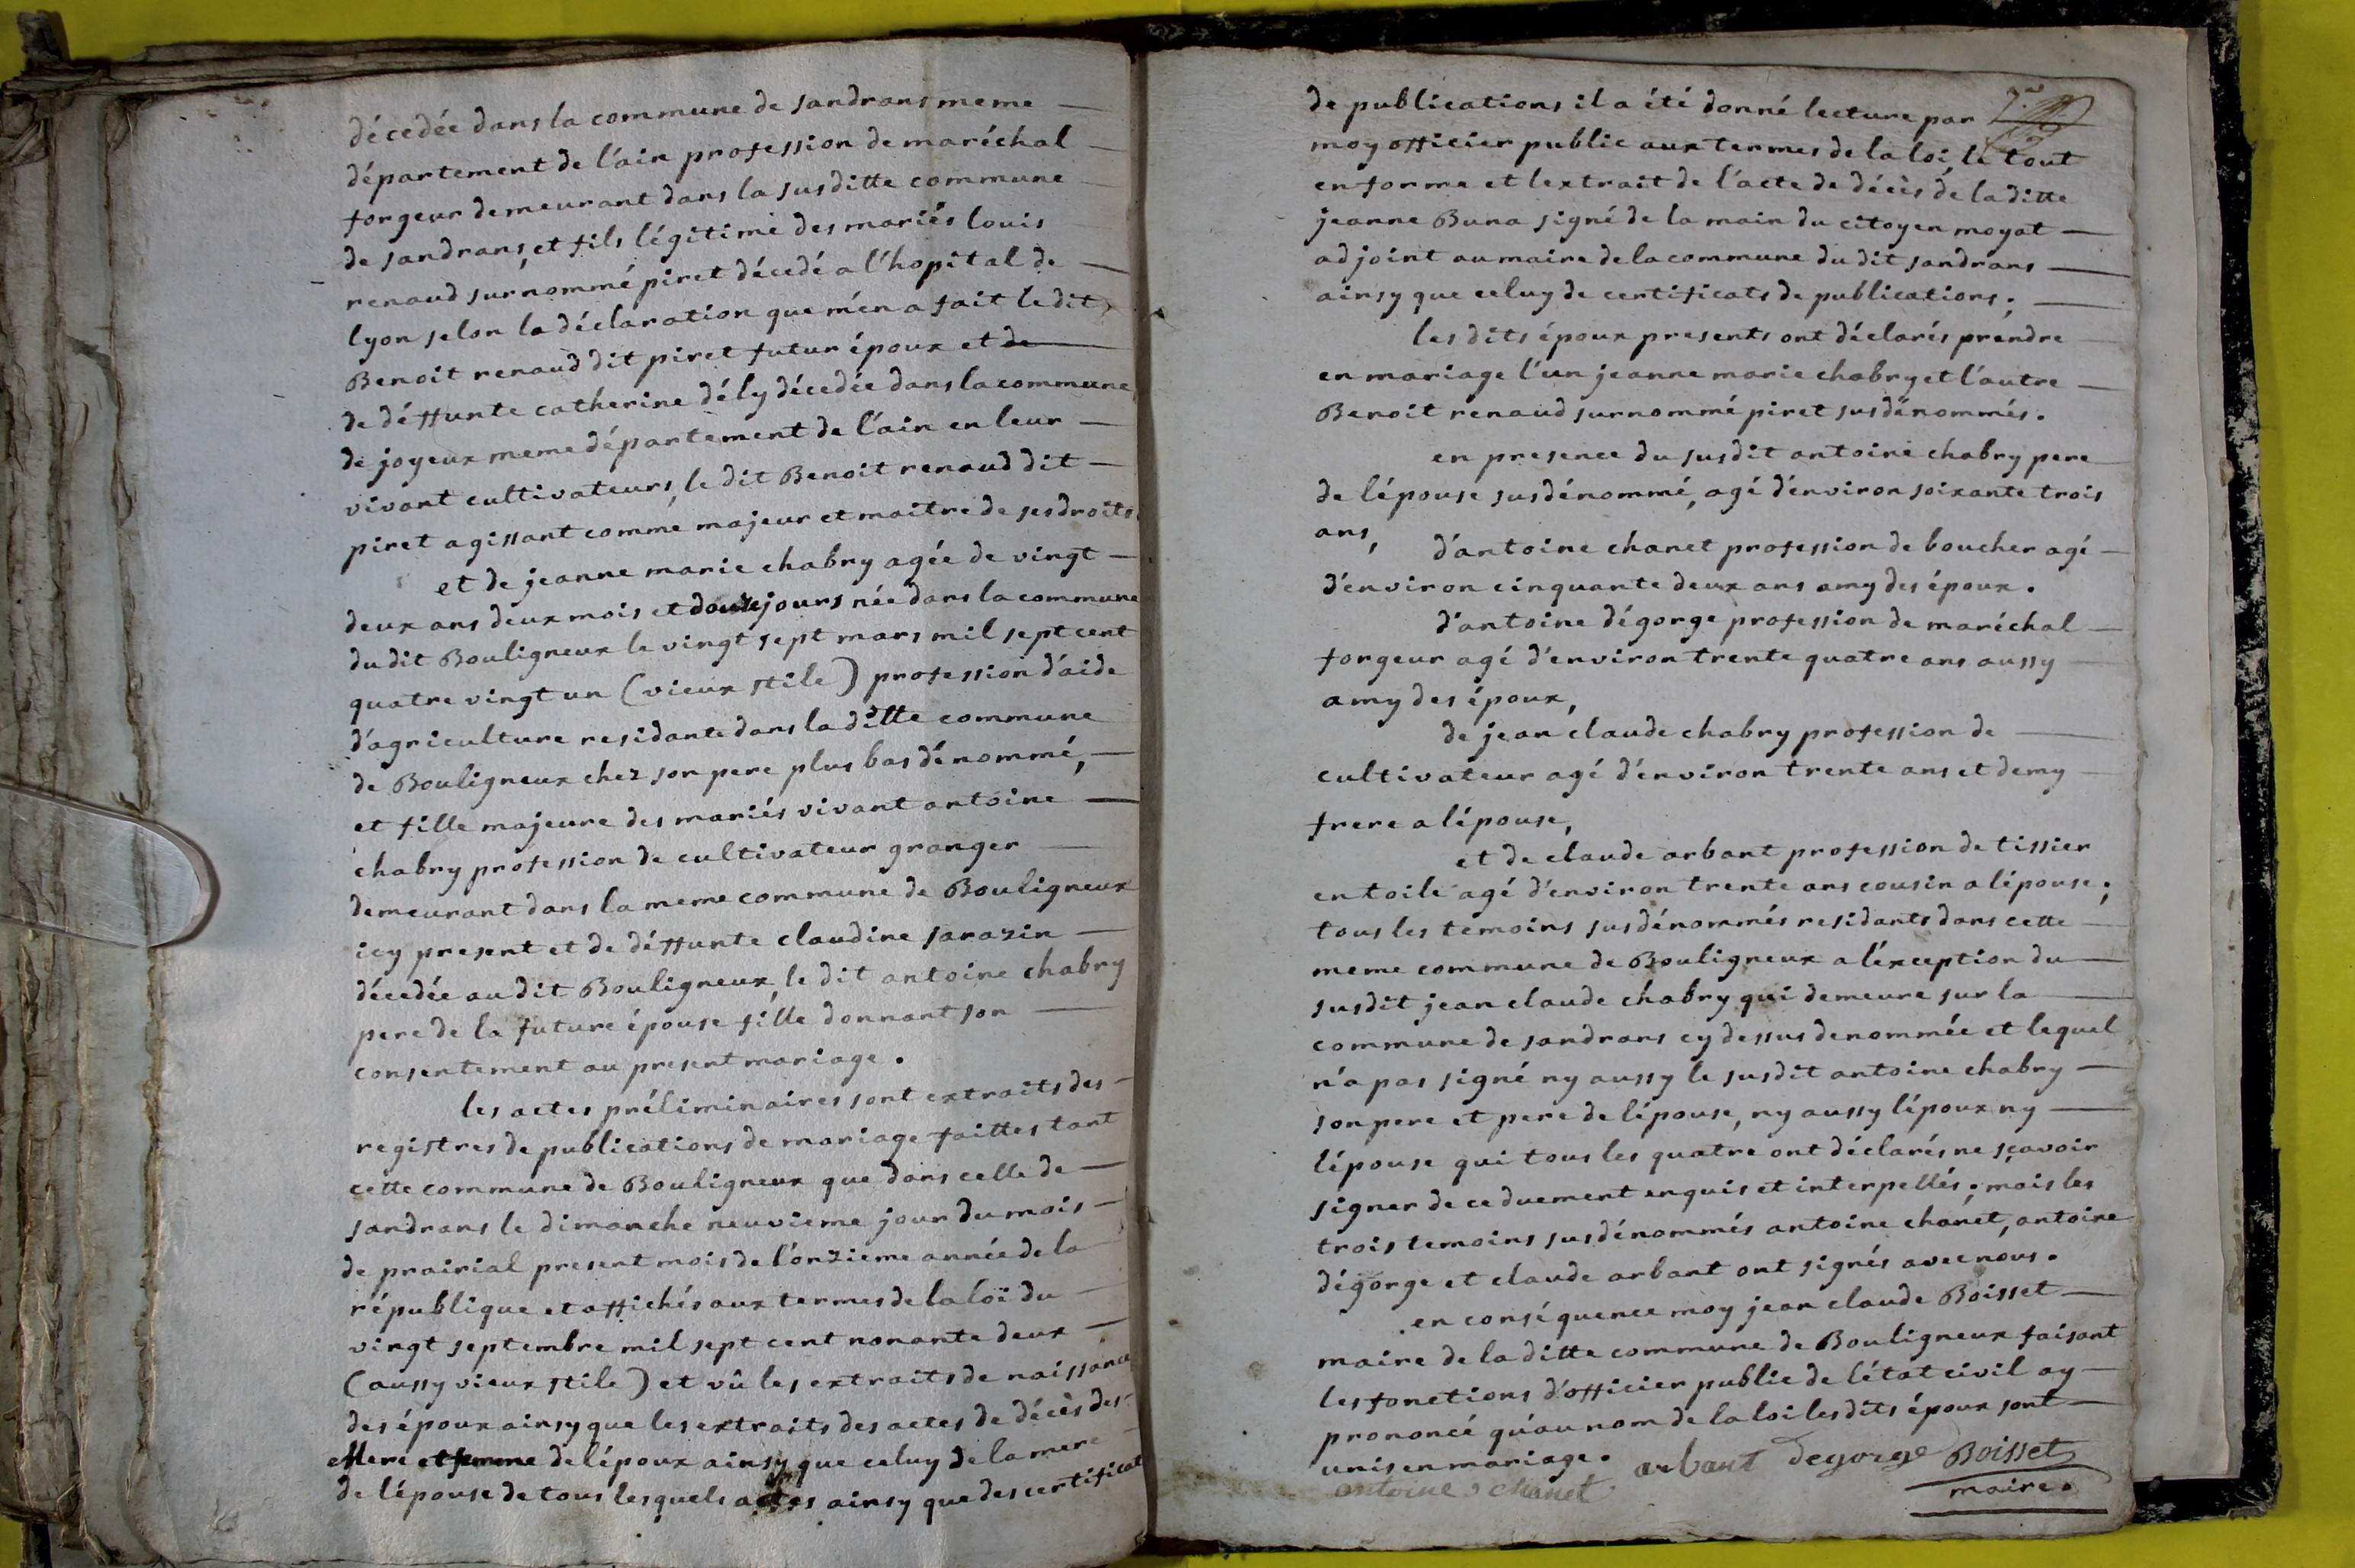 décedée dans la commune de sandrans meme
département de l'ain profession de maréchal
forgeur demeurant dans la susditte commune
de sandrans, et fils légitime des mariés louis
renaud surnommé piret décedé a l'hopital de
lyon selon la déclaration que m'en a fait le dit
Benoit renaud dit piret futur époux et de
de déffunte catherine dély décedée dans la commune
de joyeux meme département de l'ain en leur
vivant cultivateurs, le dit Benoit renaud dit
piret agissant comme majeur et maitre de ses droits
et de jeanne marie chabry agée de vingt
deux ans deux mois et douze jours née dans la commune
du dit Bouligneux le vingt sept mars mil sept cent
quatre vingt un (vieux stile) profession d'aide
d'agriculture residante dans la ditte commune
de Bouligneux chez son pere plus bas dénommé,
et fille majeure des mariés vivant antoine
chabry profession de cultivateur granger
demeurant dans la meme commune de Bouligneux
icy present et de déffunte claudine sarazin
décedée au dit Bouligneux, le dit antoine chabry
pere de la future épouse fille donnant son
consentement au present mariage.
les actes préliminaires sont extraits des
registres de publications de mariage faittes tant
cette commune de Bouligneux que dans celle de
sandrans le dimanche neuvieme jour du mois
de prairial present mois de l'onzieme année de la
république et affichés aux termes de la loi du
vingt septembre mil sept cent nonante deux
(aussy vieux stile) et vû les extraits de naissance
des époux ainsy que les extraits des actes de décès des
mere et femme de l'époux ainsy que celuy de la mere
de l'épouse de tous lesquels actes ainsy que des certificat
de publications il a été donné lecture par
moy officier public aux termes de la loi, le tout
en forme et lextrait de l'acte de décès de la ditte
jeanne Buna signé de la main du citoyen moyat
adjoint au maire de la commune du dit sandrans
ainsy que celuy de certificats de publications;
les dits époux presents ont déclarés prendre
en mariage l'un jeanne marie chabry et l'autre
Benoit renaud surnommé piret susdénommés.
en presence du susdit antoine chabry pere
de lépouse susdénommé, agé d'environ soixante trois
ans,
d'antoine chanet profession de boucher agé
d'environ cinquante deux ans amy des époux.
d'antoine dégorge profession de maréchal
forgeur agé d'environ trente quatre ans aussy
amy des époux,
de jean claude chabry profession de
cultivateur agé d'environ trente ans et demy
frere a lépouse,
et de claude arbant profession de tissier
en toile agé d'environ trente ans cousin a lépouse;
tous les temoins susdénommés residants dans cette
meme commune de Bouligneux a l'exception du
susdit jean claude chabry qui demeure sur la
commune de sandrans cy dessus denommée et lequel
n'a pas signé ny aussy le susdit antoine chabry
son pere et pere de lépouse, ny aussy lépoux ny
lépouse qui tous les quatre ont déclarés ne sçavoir
signer de ce duement enquis et interpellés; mais les
trois temoins susdénommés antoine chanet, antoine
dégorge et claude arbant ont signés avec nous.
en conséquence moy jean claude Boisset
maire de la ditte commune de Bouligneux faisant
les fonctions d'officier public de létat civil ay
prononcé qu'au nom de la loi les dits époux sont
unis en mariage. arbant degorge Boisset
antoine chanet
maire.